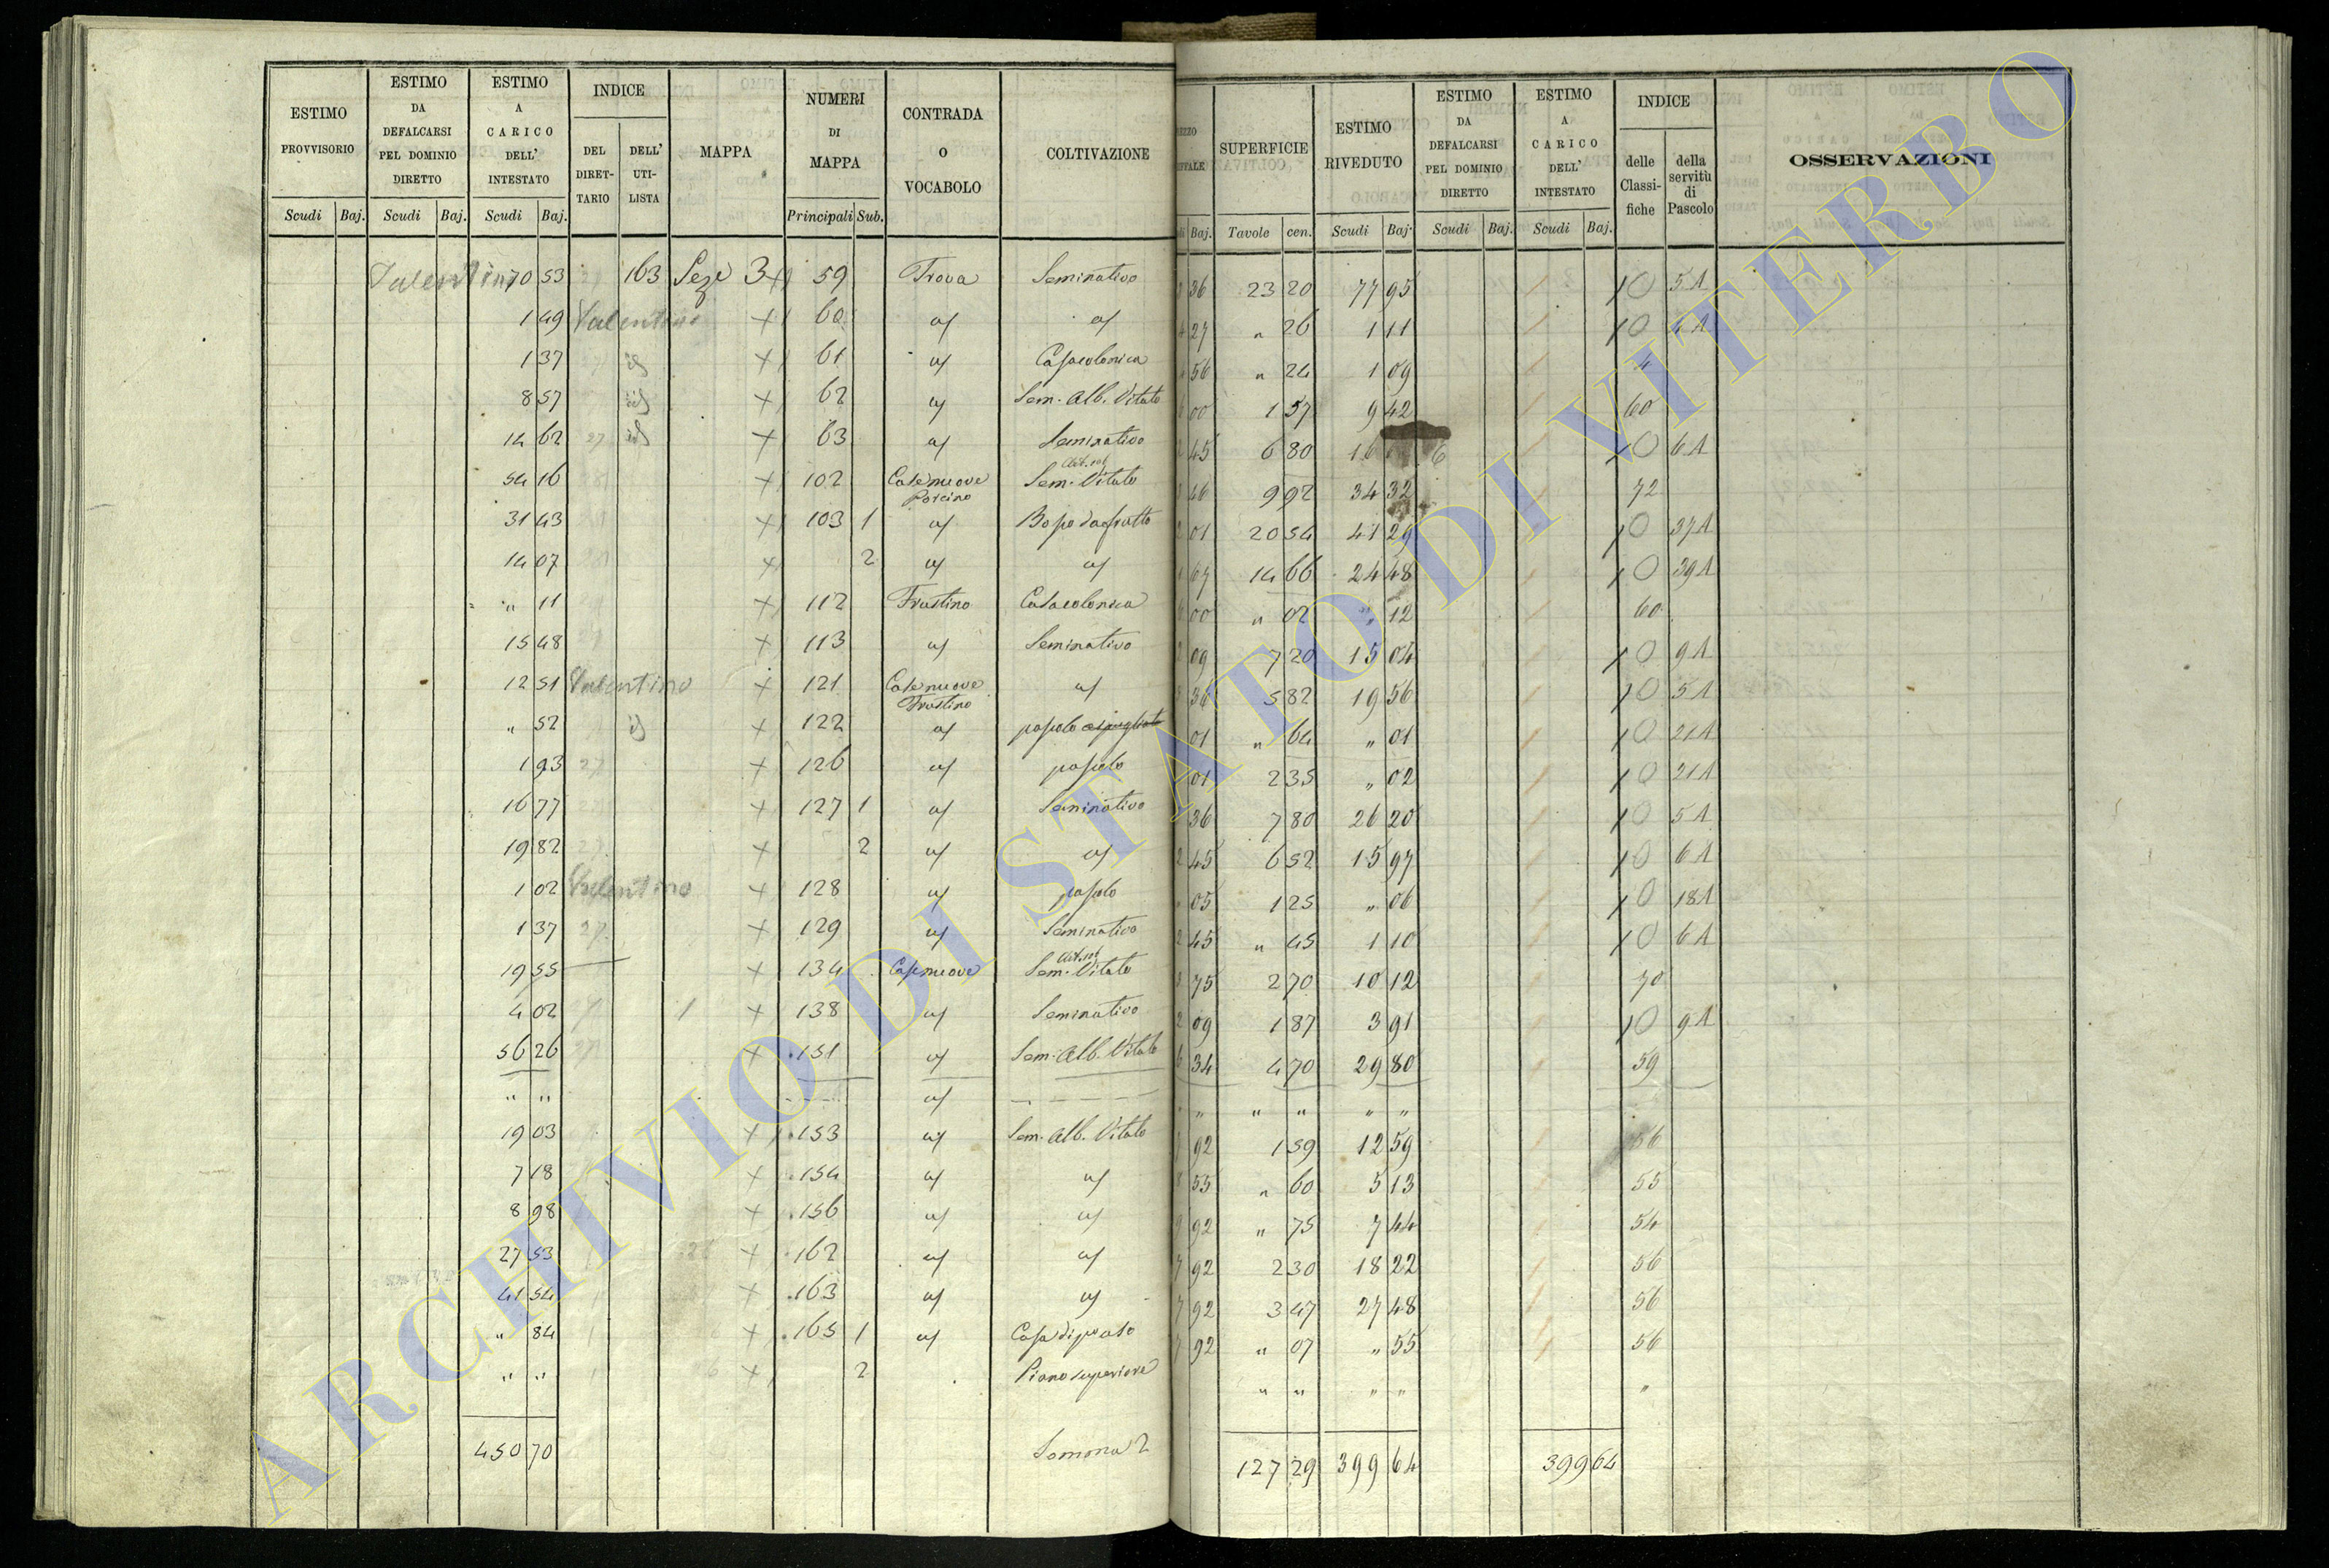 ESTIMO PROVVISORIO Scudi Baj.
ESTIMO DA DEFALCARSI PEL DOMINIO DIRETTO Scudi Baj.
ESTIMO A CARICO DELL' INTESTATO Scudi Baj.
INDICE DEL DIRET-TARIO DELL' UTI-LISTA
MAPPA
NUMERI DI MAPPA Principali Sub.
CONTRADA O VOCABOLO
COLTIVAZIONE
Baj.
SUPERFICIE Tavole cen.
ESTIMO RIVEDUTO Scudi Baj.
ESTIMO DA DEFALCARSI PEL DOMINIO DIRETTO Scudi Baj.
ESTIMO A CARICO DELL' INTESTATO Scudi Baj.
INDICE delle Classi-fiche della servitù di Pascolo
OSSERVAZIONI
Valentino 70 53 163 Seze 3 59 Trova Seminativo 36 23 20 77 95 10 51
1 49 Valentino 60 27 " 26 1 11 10
1 37 61 Casa colonica 56 " 24 1 09 4
8 57 62 Sem. Alb. Vitato 00 1 57 9 42 60
14 62 27 63 Seminativo 45 6 80 16 10 61
54 16 102 Casenuove Sem. Vitato 46 9 92 34 32 72
31 43 103 1 01 20 54 41 29 10 371
14 07 2 67 14 66 24 48 10 391
" 11 112 Frustino Casa colonica 00 " 02 " 12 60
15 48 113 Seminativo 09 7 20 15 04 10 91
12 51 Valentino 121 Casenuove Frustino 36 5 82 19 56 10 51
" 52 122 pascolo 01 " 64 " 01 10 211
1 93 27 126 pascolo 01 2 35 " 02 10 211
16 77 127 1 Seminativo 36 7 80 26 20 10 51
19 82 2 45 6 52 15 97 10 61
1 02 Valentino 128 pascolo 05 1 25 " 06 10 181
1 37 27 129 Seminativo 45 " 45 1 10 10 61
19 55 134 Casenuove Sem. Vitato 75 2 70 10 12 70
4 02 138 Seminativo 09 1 87 3 91 10 91
56 26 151 Sem. Alb. Vitato 34 4 70 29 80 59
" " " " " " "
19 03 153 Sem. Alb. Vitato 92 1 59 12 59 56
7 18 154 55 " 60 5 13 55
8 98 156 92 " 75 7 44 54
27 53 162 92 2 30 18 22 56
41 54 163 92 3 47 27 48 56
" 84 165 1 Casa 92 " 07 " 55 56
" " 2 Piano superiore " " " " "
450 70 Somma 2 127 29 399 64 399 64
ARCHIVIO DI STATO DI VITERBO